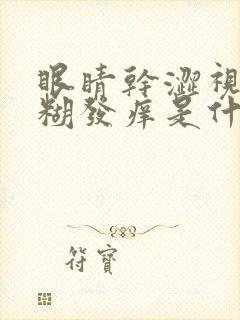 眼睛幹澀視
糊發痒是什
符寶